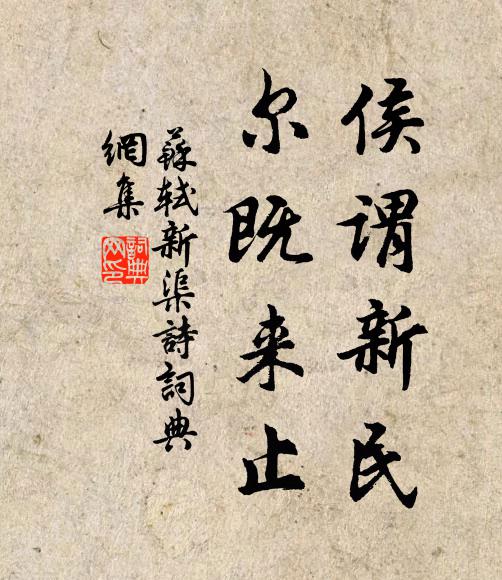 侯谓新民
尔既来止
蘇軾新渠詩詞典
網集
詞典網印